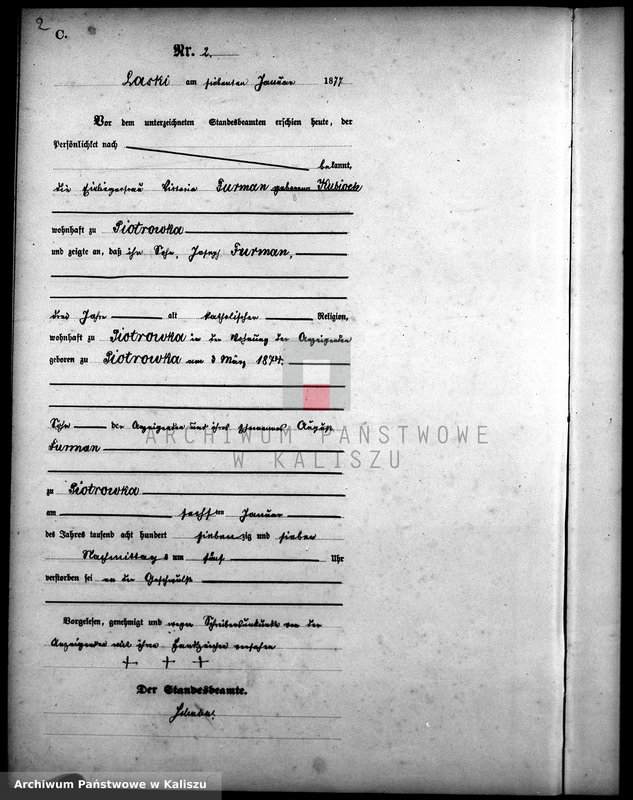 2
C.
Nr. 2.
Laski am siebenten Januar 1877
Vor dem unterzeichneten Standesbeamten erschien heute, der
Persönlichkeit nach
bekannt,
die Einliegerfrau Victoria Furman geborene Kubiach
wohnhaft zu Piotrowka
und zeigte an, daß ihr Sohn, Joseph Furman,
drei Jahr alt katholischer Religion,
wohnhaft zu Piotrowka in der Wohnung der Anzeigenden
geboren zu Piotrowka am 3 März 1874.
Sohn der Anzeigenden und ihres Ehemannes August
Furman
ARCHIWUM PAŃSTWOWE
W KALISZU
zu Piotrowka
am sechsten Januar
des Jahres tausend acht hundert siebenzig und sieben
Nachmittags um fünf Uhr
verstorben sei an der Geschwulst
Vorgelesen, genehmigt und wegen Schreibensunkunde von der
Anzeigenden mit ihrem Handzeichen versehen
+ + +
Der Standesbeamte.
Archiwum Państwowe w Kaliszu